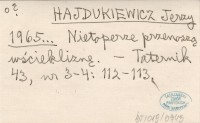 o?
HAJDUKIEWICZ Jerzy
1965... Nietoperze przenoszą
wściekliznę. – Taternik
43, nr 3-4: 112-113.